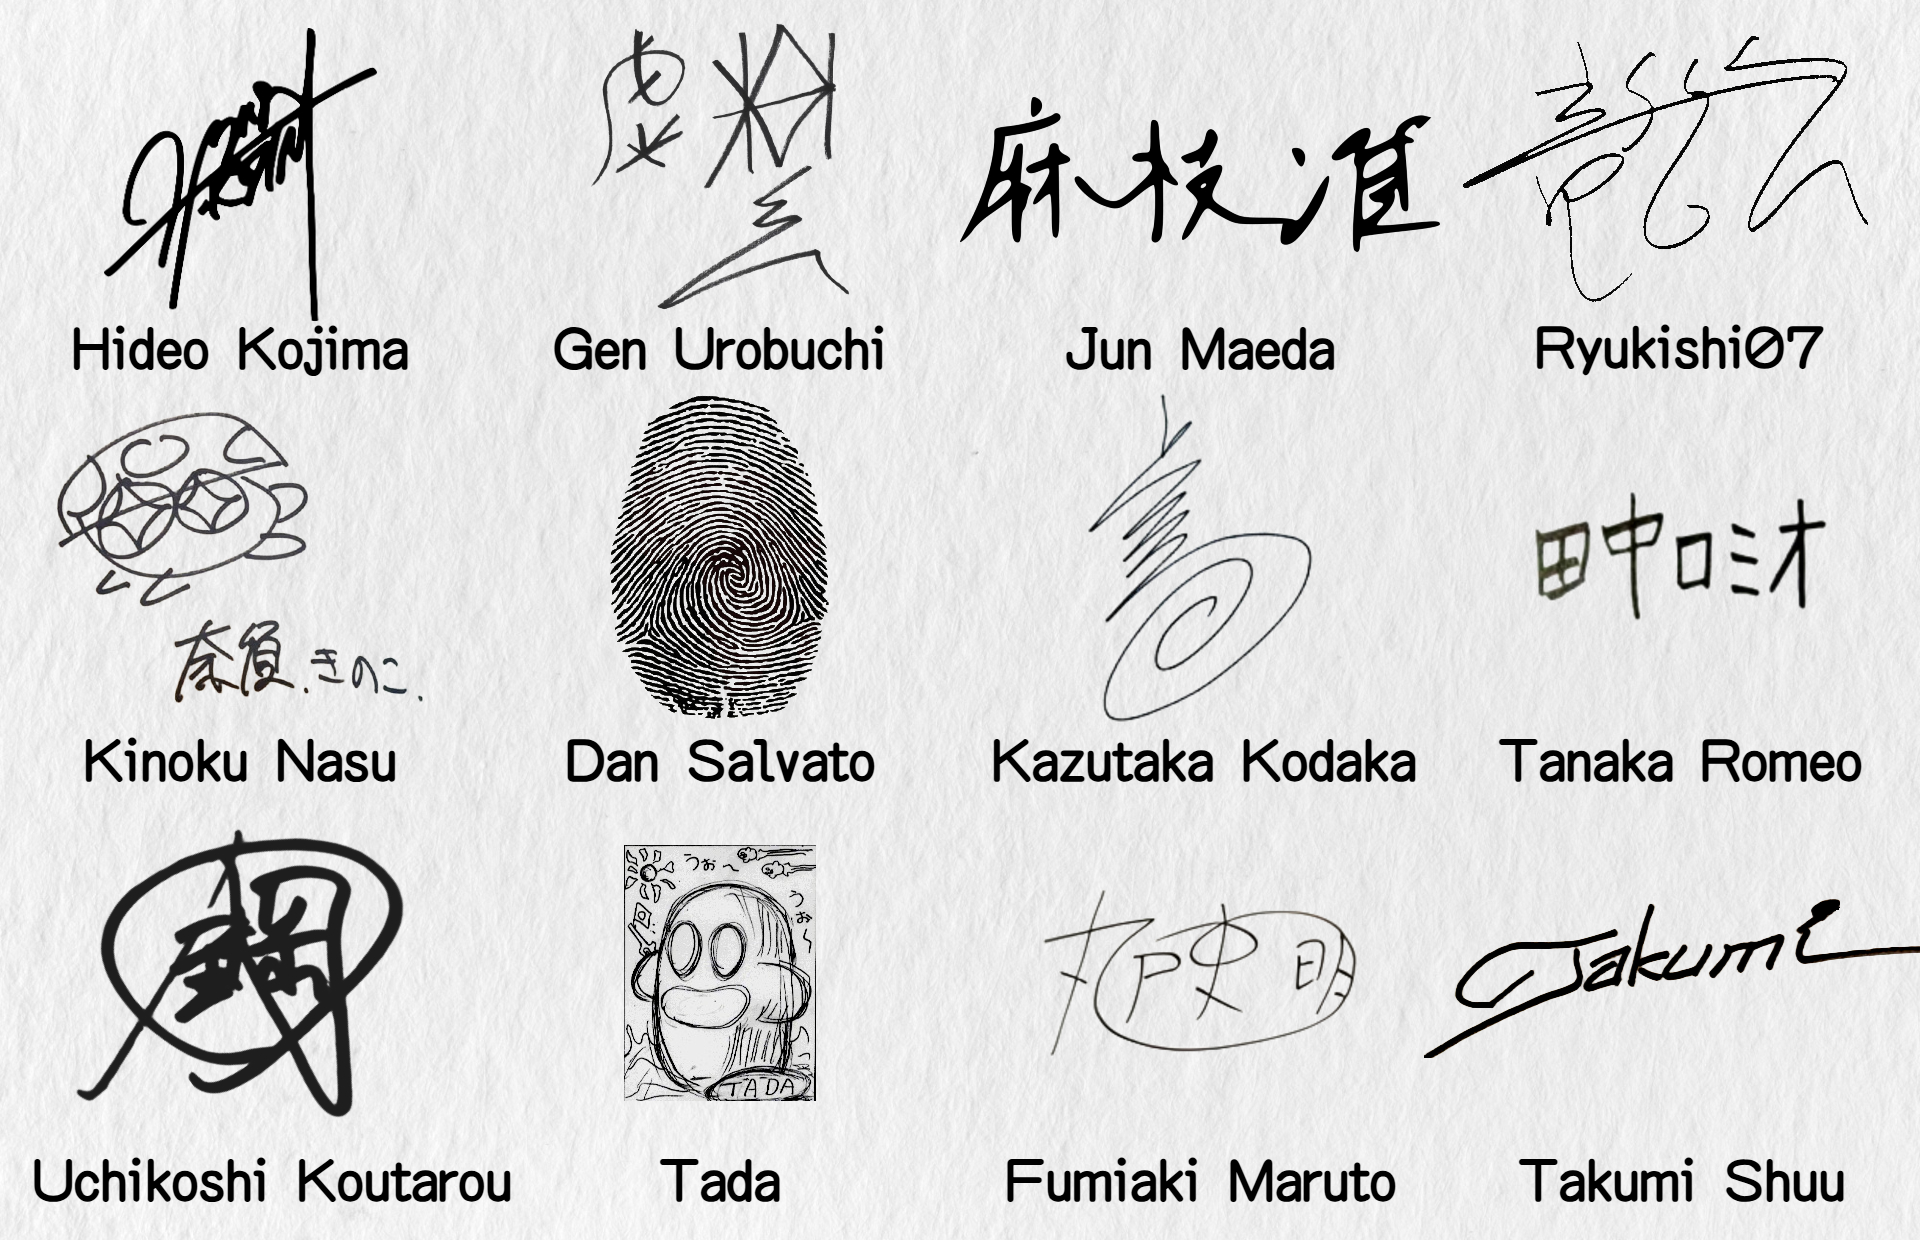 麻枝准
Hideo Kojima
Gen Urobuchi
Jun Maeda
Ryukishi07
田中ロミオ
奈須きのこ
Kinoku Nasu
Dan Salvato
Kazutaka Kodaka
Tanaka Romeo
うぉ〜
うぉ〜
TADA
丸戸史明
Takumi
Uchikoshi Koutarou
Tada
Fumiaki Maruto
Takumi Shuu